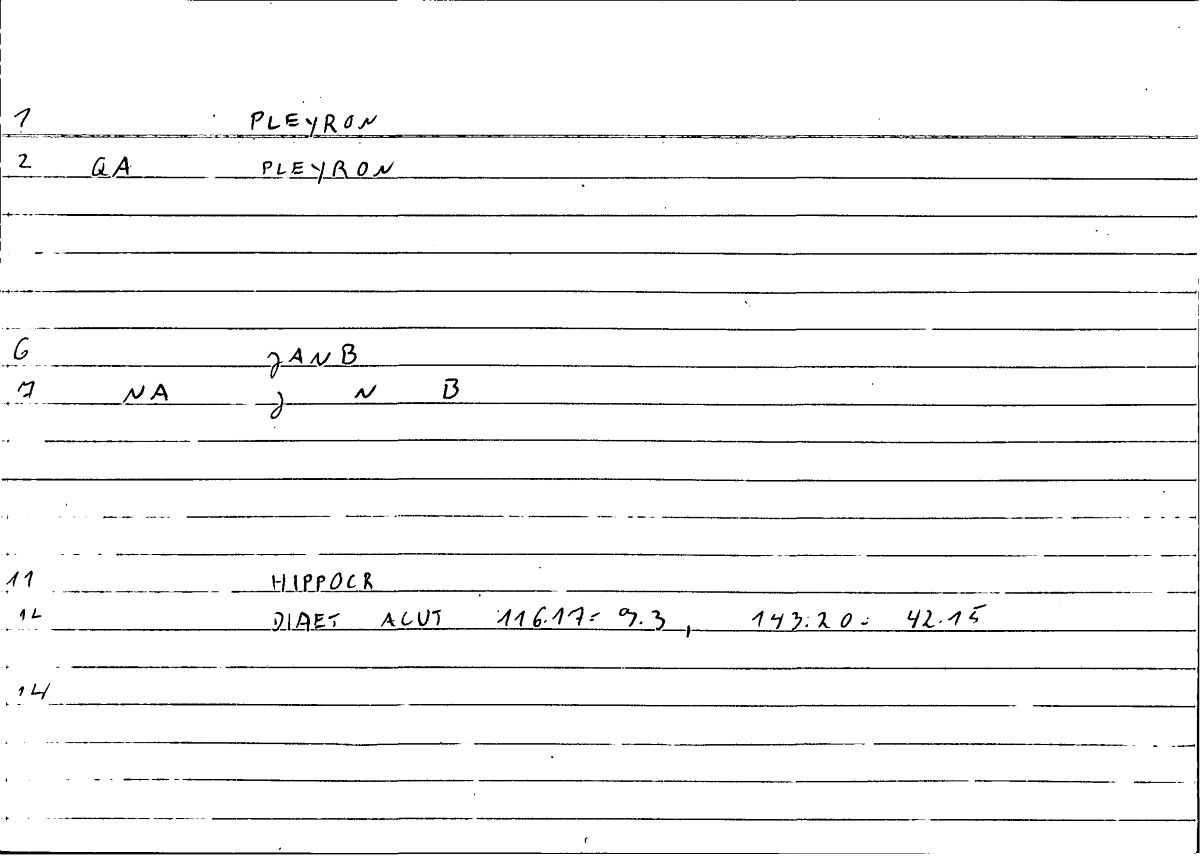 1 PLEYRON
2 QA PLEYRON
6 ȝANB
7 NA ȝ N B
11 HIPPOCR
12 DIAET ACUT 116.17= 9.3, 143.20= 42.15
14